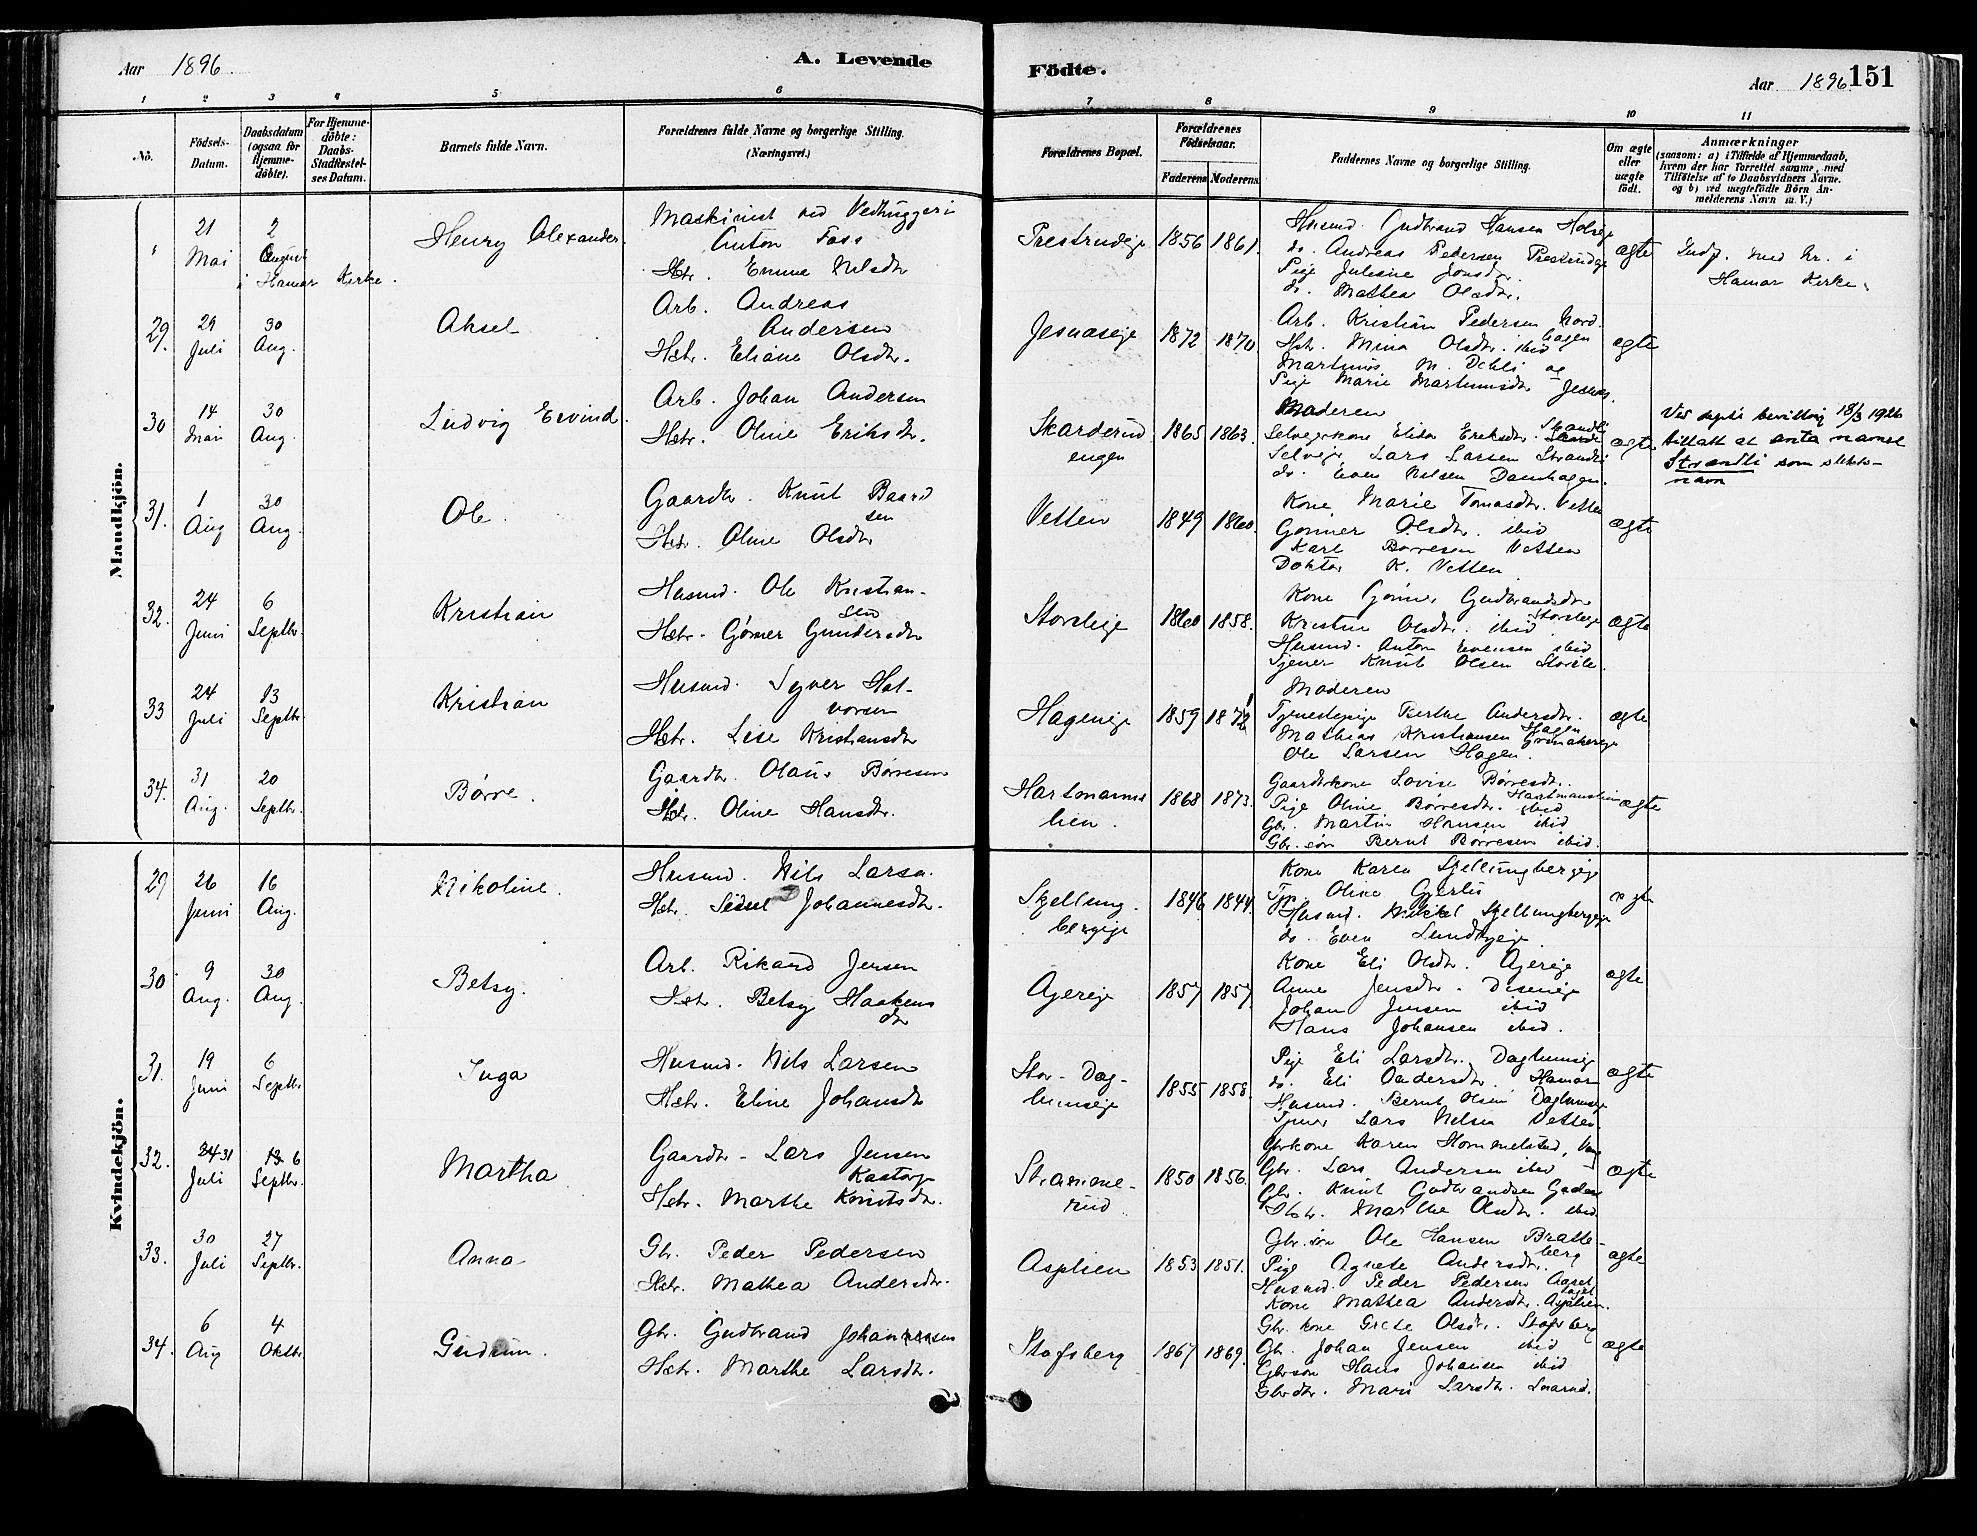 Aar 1896.
A. Levende
Födte.
Aar 1896 151
1 2 3 4 5 6 7 8 9 10 11
No.
Födsels-Datum.
Daabsdatum (ogsaa for Hjemme-döbte).
For Hjemme-döbte: Daabs-Stadfæstel-ses Datum.
Barnets fulde Navn.
Forældrenes fulde Navne og borgerlige Stilling. (Næringsvei.)
Forældrenes Bopæl.
Forældrenes Födselsaar.
Faderens Moderens
Faddernes Navne og borgerlige Stilling.
Om ægte eller uægte födt.
Anmærkninger
(saasom: a) i Tilfælde af Hjemmedaab,
hvem der har forrettet samme, med
Tilföielse af to Daabsvidners Navne.
og b) ved uægtefödte Börn An-
melderens Navn m. V.)
Mandkjön.
" 21 Mai 2 August i Hamar Kirke.
Henry Alexander.
Maskinist ved Vedhuggeri
Anton Foss
Hstr. Emma Nilsdtr
Prestrudeje 1856 1861.
Husmd. Gudbrand Hansen
do. Andreas Pedersen Prestrudeje
Pige Juliane Jonsdtr.
do. Mathea Olsdtr.
ægte
Indf. med Nr. i
Hamar Kirke.
29. 29 Juli 30 Aug.
Aksel
Arb. Andreas
Andersen
Hstr. Eliane Olsdtr.
Jesnæseje 1872 1870.
Arb. Kristian Pedersen Nord-
hagen
Hstr. Mina Olsdtr. ibid
Martinus M. Dehli og
Pige Marie Martinusdtr Jesnes.
ægte
30 14 Mai 30 Aug.
Ludvig Eivind.
Arb. Johan Andersen
Hstr. Oline Eriksdtr.
Skarderud
engen
1865 1863.
Moderen
Selveierkone Elida Eriksdtr. Strandli
Selveier Lars Larsen Strandli
do. Even Nilsen Damhagen.
ægte
Ved depts bevilling 18/3 1926
tillatt at anta navnet
Strandli som slekts-
navn
31. 1 Aug 30 Aug.
Ole.
Gaardbr. Knut Baard
sen
Hstr. Oline Olsdtr
Vetten 1849 1860.
Kone Marie Tomasdtr. Vetten
Gonner Olsdtr. ibid
Karl Børresen Vetten
Doktor K. Vetten
ægte
32. 24 Juni 6 Septbr.
Kristian
Husmd. Ole Kristian-
sen
Hstr. Gørner Gundersdtr
Storsleije 1860 1858.
Kone Gonner Gudbrandsdtr
Storsleije
Kristin Olsdtr. ibid
Husmd. Anton Evensen ibid
Tjener Knut Olsen Storsle.
ægte
33 24 Juli 13 Septbr.
Kristian
Husmd. Syver Hal-
vorsen
Hstr. Lise Kristiansdtr
Hageneje 1859 1872
Moderen
Tjenestepige Berthe Andersdtr.
Hagen
Mathias Kristiansen
Ole Larsen Hagen.
ægte
34. 31 Aug. 20 Septbr.
Børre.
Gaardbr. Olaus Børresen
Hstr. Oline Hansdtr.
Hartmanns
lien.
1868 1873.
Gaardbrkone Lovise Børresdtr.
Hartmanslien
Pige Oline Børresdtr. ibid
Gbr. Martin Hansen ibid
Gbr. søn Bernt Børresen ibid.
ægte
Kvindekjön.
29 26 Juni 16 Aug.
Nikoline.
Husmd. Nils Larsn.
Hstr. Sidsel Johannesdtr.
Skjellung-
bergeje
1846 1844.
Kone Karen Skjellungbergeje
Tjp. Oline Gjerlu
Husmd. Mikkel Skjellungbergeje
do. Even Lundbyeje.
ægte
30 9 Aug. 30 Aug.
Betsy.
Arb. Rikard Jensen
Hstr. Betsy Haakens
dtr
Ajereje 1857 1857.
Kone Eli Olsdtr. Ajereje
Anne Jensdtr. Diseneje
Johan Jensen ibid
Hans Johansen ibid.
ægte
31. 19 Juni 6 Septbr.
Inga
Husmd. Nils Larsen
Hstr. Eline Johansdtr
Stor-Dag-
lumseje
1855 1858.
Pige Eli Larsdtr. Daglumseje
do. Eli Andersdtr. Hamar
Husmd. Bernt Olsen Daglumseje
Tjener Lars Nilsen Vetten.
ægte
32. 24 31 Juli 13 6 Septbr.
Martha
Gaardbr. Lars Jensen
Kastorp
Hstr. Marthe Knutsdtr.
rud. 1850 1856.
Gbrkone Karen Hommelstad, Vang
Gbr. Lars Andersen ibid
Gbr. Knut Gudbrandsen
Hstr. Marthe Olsdtr. ibid
ægte
33. 30 Juli 27 Septbr.
Anna
Gbr. Peder Pedersen
Hstr. Mathea Andersdtr.
Asplien 1853 1851.
Gbr. søn Ole Hansen Bratte-
berg
Pige Agnete Andersdtr.
Husmd. Peder Pedersen
Kone Mathea Andersdtr. Asplien.
ægte
34. 6 Aug 4 Oktbr.
Gudrun.
Gbr. Gudbrand Johannesen
Hstr. Marthe Larsdtr.
Stafsberg 1867 1869.
Gbr. kone Grete Olsdtr. Stafsberg
Gbr. Johan Jensen ibid
Gbrsøn Hans Johansen ibid
Gbrdtr. Mari Larsdtr.
ægte